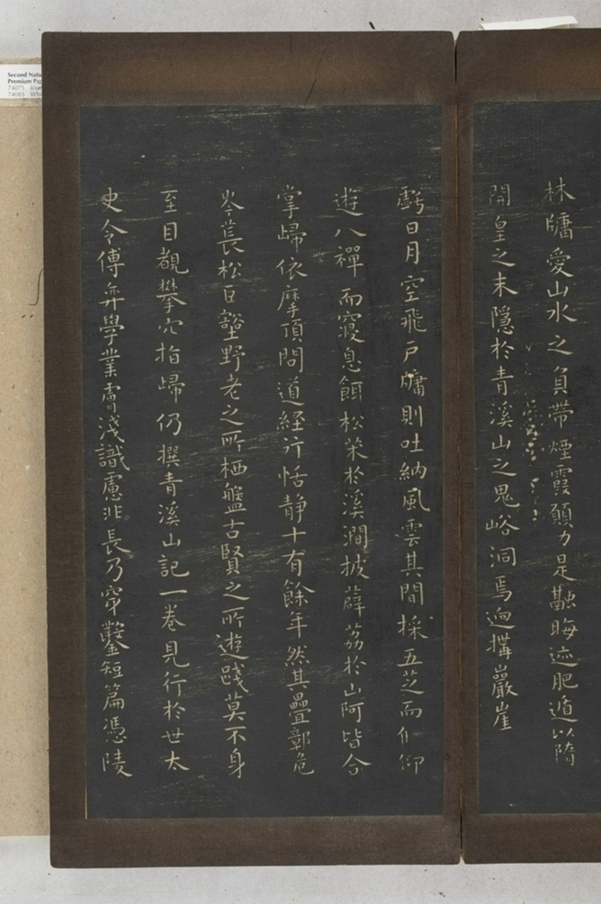 林牖愛山水之負帶煙霞顧力是融晦迹肥遁以隋
開皇之末隱於青溪山之鬼峪洞焉迥構巖崖
虧日月空飛戶牖則吐納風雲其間採五芝而仆仰
遊八禪而寢息餌松荣於溪澗披薜荔於山阿皆合
掌歸依摩頂問道經行恬靜十有餘年然其疊鄣危
岑長松巨壑野老之所栖盤古賢之所遊踐莫不身
至目覩攀穴指歸仍撰青溪山記一卷見行於世太
史令傅弈學業膚淺識慮非長乃穿鑿短篇憑陵
Second Natu
Premium Pap
74075
74085 Whi